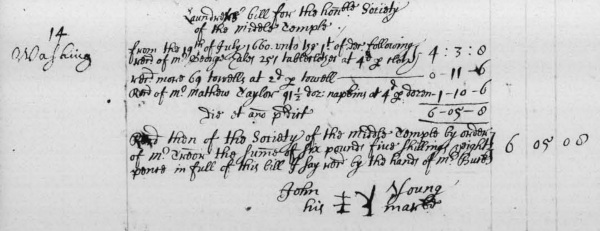 14
Washing
Laundress bill for the honble Society
of the Middle Temple
from the 19th of July 1660 unto the 1t of dec following
Recd of mr George Hales 251 tablecloths at 4d p cloth 4 : 3 : 8
Recd more 69 towells at 2d p towell 0 - 11 - 6
Recd of mr Mathew Taylor 91 1/2 doz: napkins at 4d p dozen 1 - 10 - 6
die et ano pdict 6 - 05 - 8
Recd then of the Society of the middle Temple by order
of mr Treōr the sume of six pounds five shillings eight
pence in full of this bill I say recd by the hands of mr Buck 6 05 08
John Young
his marke